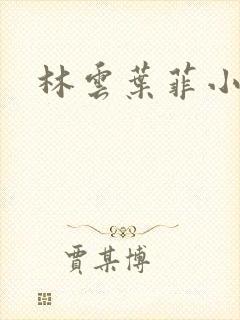 林雲葉菲小
賈某博